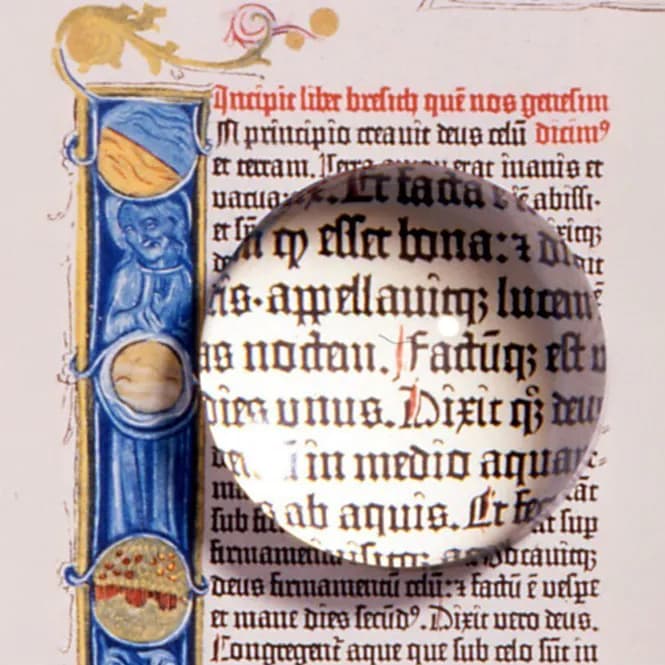 Incipit liber bresith quē nos genesim
In principio creauit deus celū dicimꝰ
et terram. Terra erat inanis et
vacua Et facta ē abissi·
et sp̄ ꝙ esset bona: ⁊ dixitqꝫ
is· appellauitqꝫ lucem
as noctem. Factūqꝫ est
dies vnus. Dixit qꝫ deus
in medio aquar
ab aquis. Et fe
sub sup
firmamen ocauitqꝫ
deus firmamentū celū: ⁊ factū ē vespe
et mane dies secūdꝰ. Dixit vero deus.
Congregent᷑ aque que sub celo sūt in